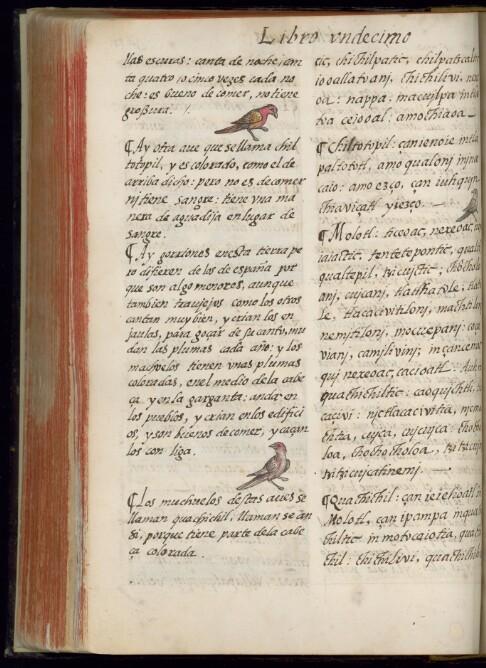 Libro vndecimo
llas escuras: canta de noche, can
ta quatro, o cinco vezes cada no
che: es bueno de comer, no tiene
grosura.
¶ Ay otra aue que se llama chil
totopil, y es colorado, como el de
arriba dicho: pero no es de comer
nj tiene sangre: tiene vna ma
nera de aguadija en lugar de
sangre.
¶ Ay gorriones en esta tierra pe
ro difieren de los de españa por
que son algo menores, aunque
tambien traujesos como los otros
cantan muy bien, y crian los en
jaulas, para goçar de su canto, mu
dan las plumas cada año: y los
machuelos tienen vnas plumas
coloradas, en el medio de la cabe
ça, y en la garganta: andan en
los pueblos, y crian en los edifici
os, y son buenos de comer, y caçan
los con liga.
¶ Los muchuelos destas aues se
llaman quachichil, llaman se an
si, porque tiene parte de la cabe
ça colorada.
tic, chichilpatic, chilpatzcaltic
oa: nappa, macujlpa in
tza ceiooal: amo chiaoa
¶ Chiltotopil: can ie noie in tla
paltototl, amo qualonj in jna
caio: amo ezço, çan iuhqujn
chiaviçatl yiezço.
¶ Molotl: ticeoac, nexeoac,
iaiactic, tentetepontic,
qualtepil, tzicujctic,
anj, cujcanj,
le, tlacacivitilonj,
nemjtilonj, moccuepanj:
vianj, camjlivinj; in
quj nexeoac, cacioatl:
quachichiltic: caoqujchtli,
cacivi: njetlacacivitia,
chtia, cujca, cujcujca:
loa, chochocholoa,
tzitzicujcatinemj.
¶ Quachichil: çan ie iehoatl in
Molotl, çan ipampa in qua
chiltic in motzcaiotia,
chil: chichilivi, quachichil